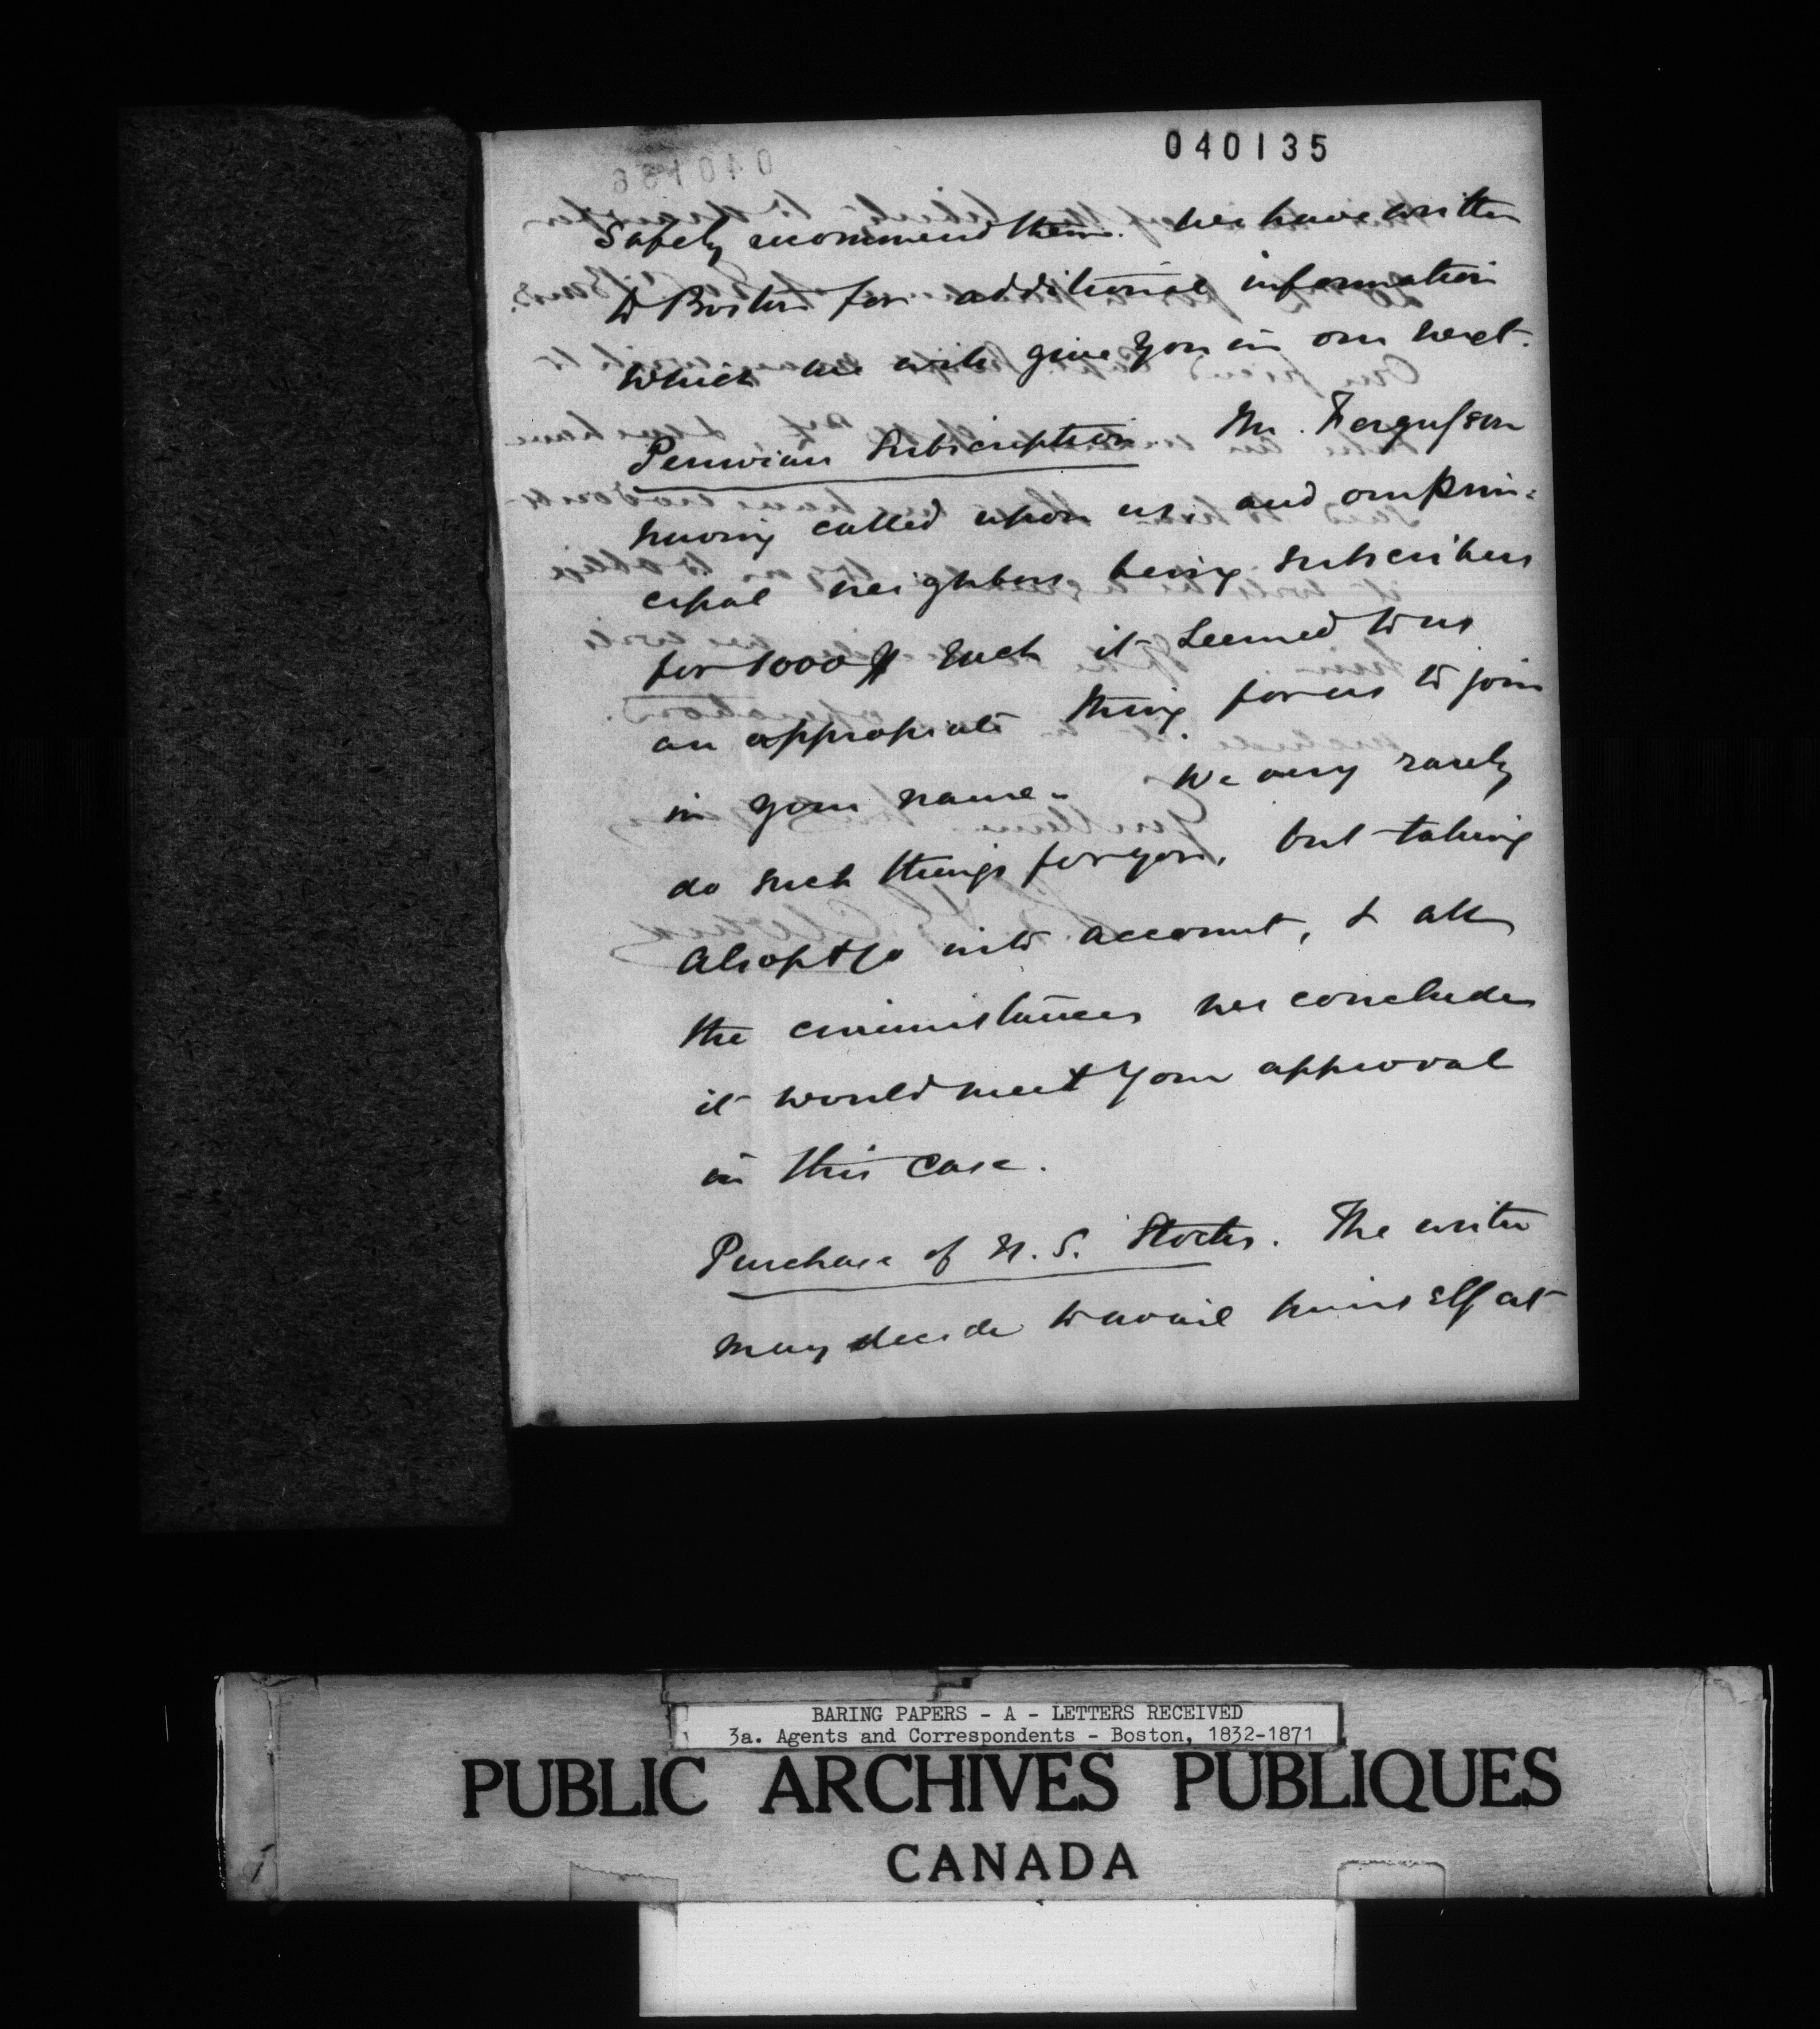 040135
safely recommend them. We have written
to Boston for additional information
which we will give you in our next.
Peruvian Subscription Mr. Fergusson
having called upon us, and our prin-
cipal neighbors being subscribers
for 1000$ each it seemed to us
an appropiate thing for us to join
in your name. We very rarely
do such things for you, but taking
Alsop & Co into account, & all
the circumstances we conclude
it would meet your approval
in this case.
Purchase of U. S. Stocks. The writer
may decide to avail himself at
BARING PAPERS - A - LETTERS RECEIVED
3a. Agents and Correspondents - Boston, 1832-1871
PUBLIC ARCHIVES PUBLIQUES
CANADA